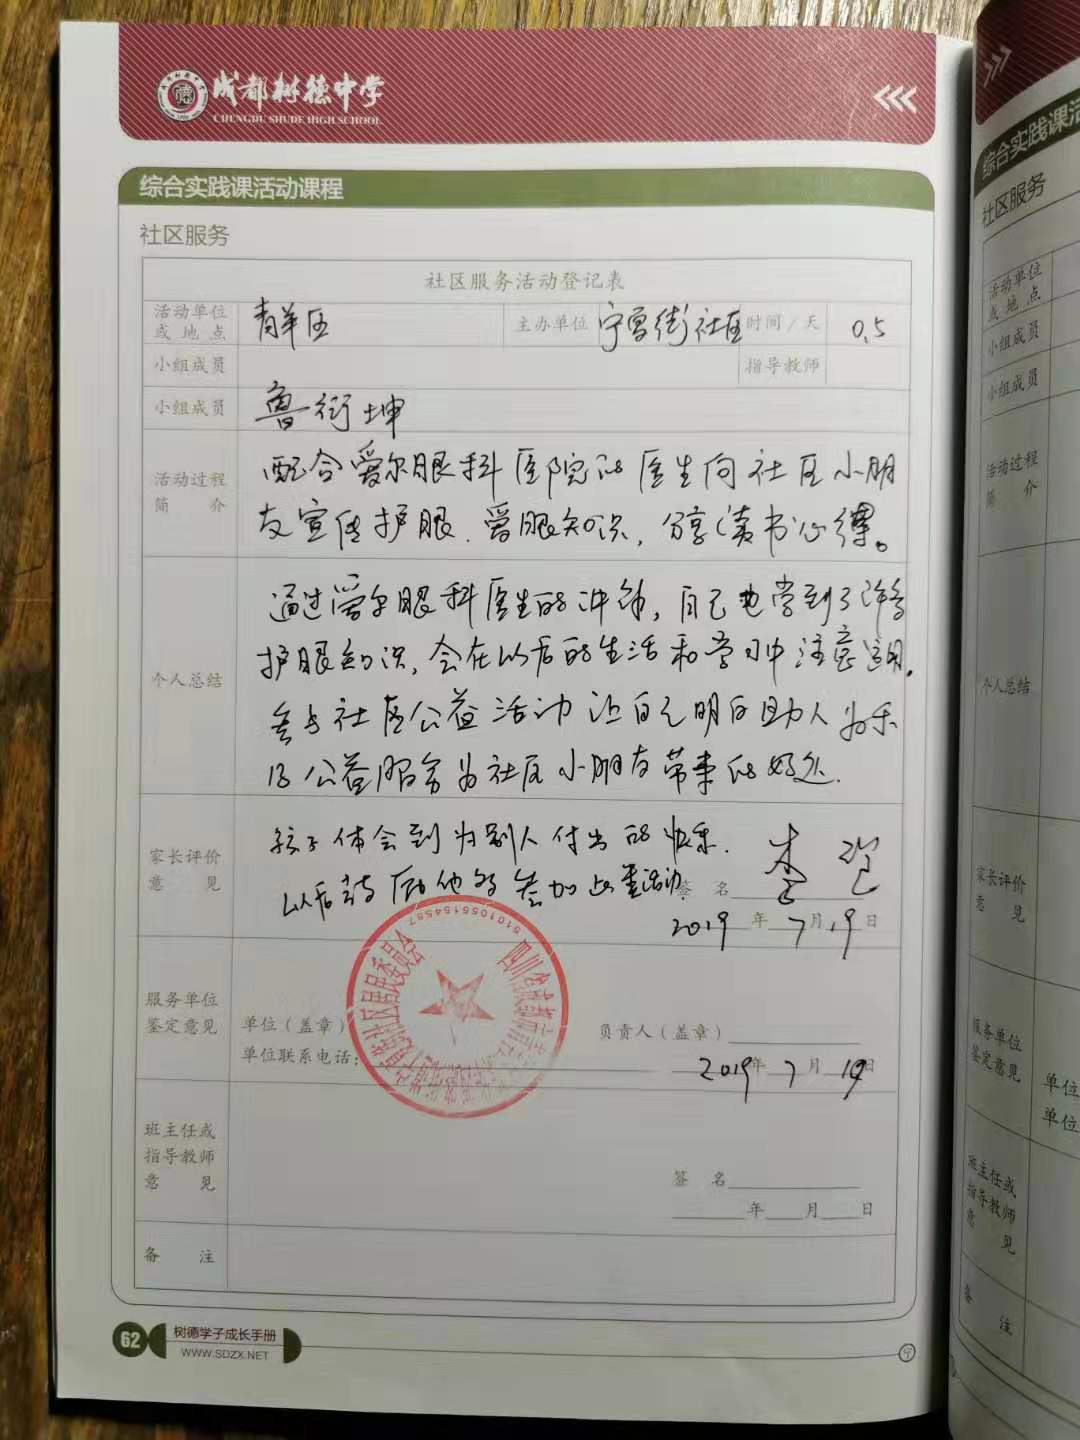 成都树德中学
CHENGDU SHUDE HIGH SCHOOL
综合实践课活动课程
社区服务
社区服务活动登记表
活动单位或地点 青羊区 主办单位 宁夏街社区 时间/天 0.5
小组成员 指导教师
小组成员 鲁衍坤
活动过程简介
配合爱尔眼科医院的医生向社区小朋
友宣传护眼、爱眼知识，分享读书心得。
个人总结
通过爱尔眼科医生的讲解，自己也学到了许多
护眼知识，会在以后的生活和学习中注意运用。
参与社区公益活动让自己明白助人为乐
的公益服务为社区小朋友带来的好处.
家长评价意见
孩子体会到为别人付出的快乐.
以后鼓励他多参加此类活动.
签名 李
2019年7月19日
服务单位鉴定意见
单位（盖章） 负责人（盖章）
单位联系电话：
2019年7月19日
5101055154557
班主任或指导教师意见
签名
年 月 日
备注
62 树德学子成长手册
WWW.SDZX.NET
综合实践课活
社区服务
活动单位或地点
小组成员
小组成员
活动过程简介
个人总结
家长评价意见
服务单位鉴定意见
单位
单位
班主任或指导教师意见
备注